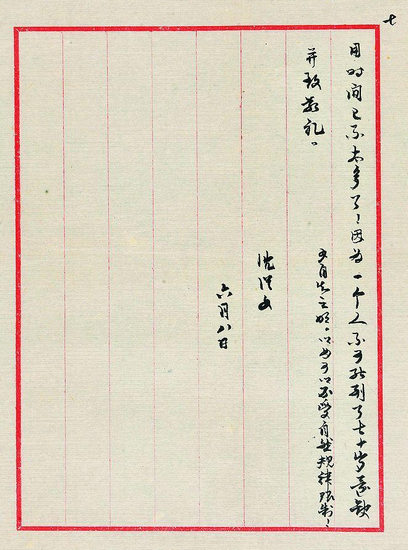 七
用时间已不太多了，因为一个人不可能到了七十岁还缺
少自知之明，以为可以不受自然规律限制，
并致敬礼。
沈从文
六月八日